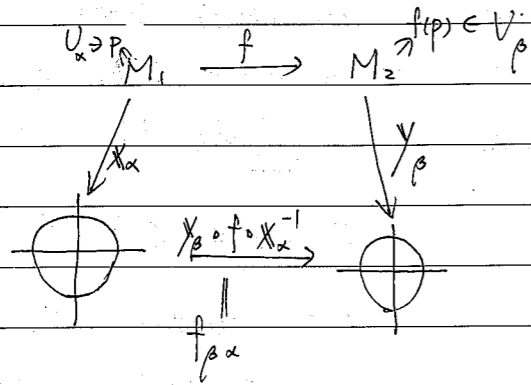 U_α ∋ p M₁ f M₂ f(p) ∈ V_β
x_α y_β
y_β ∘ f ∘ x_α⁻¹
||
f_βα